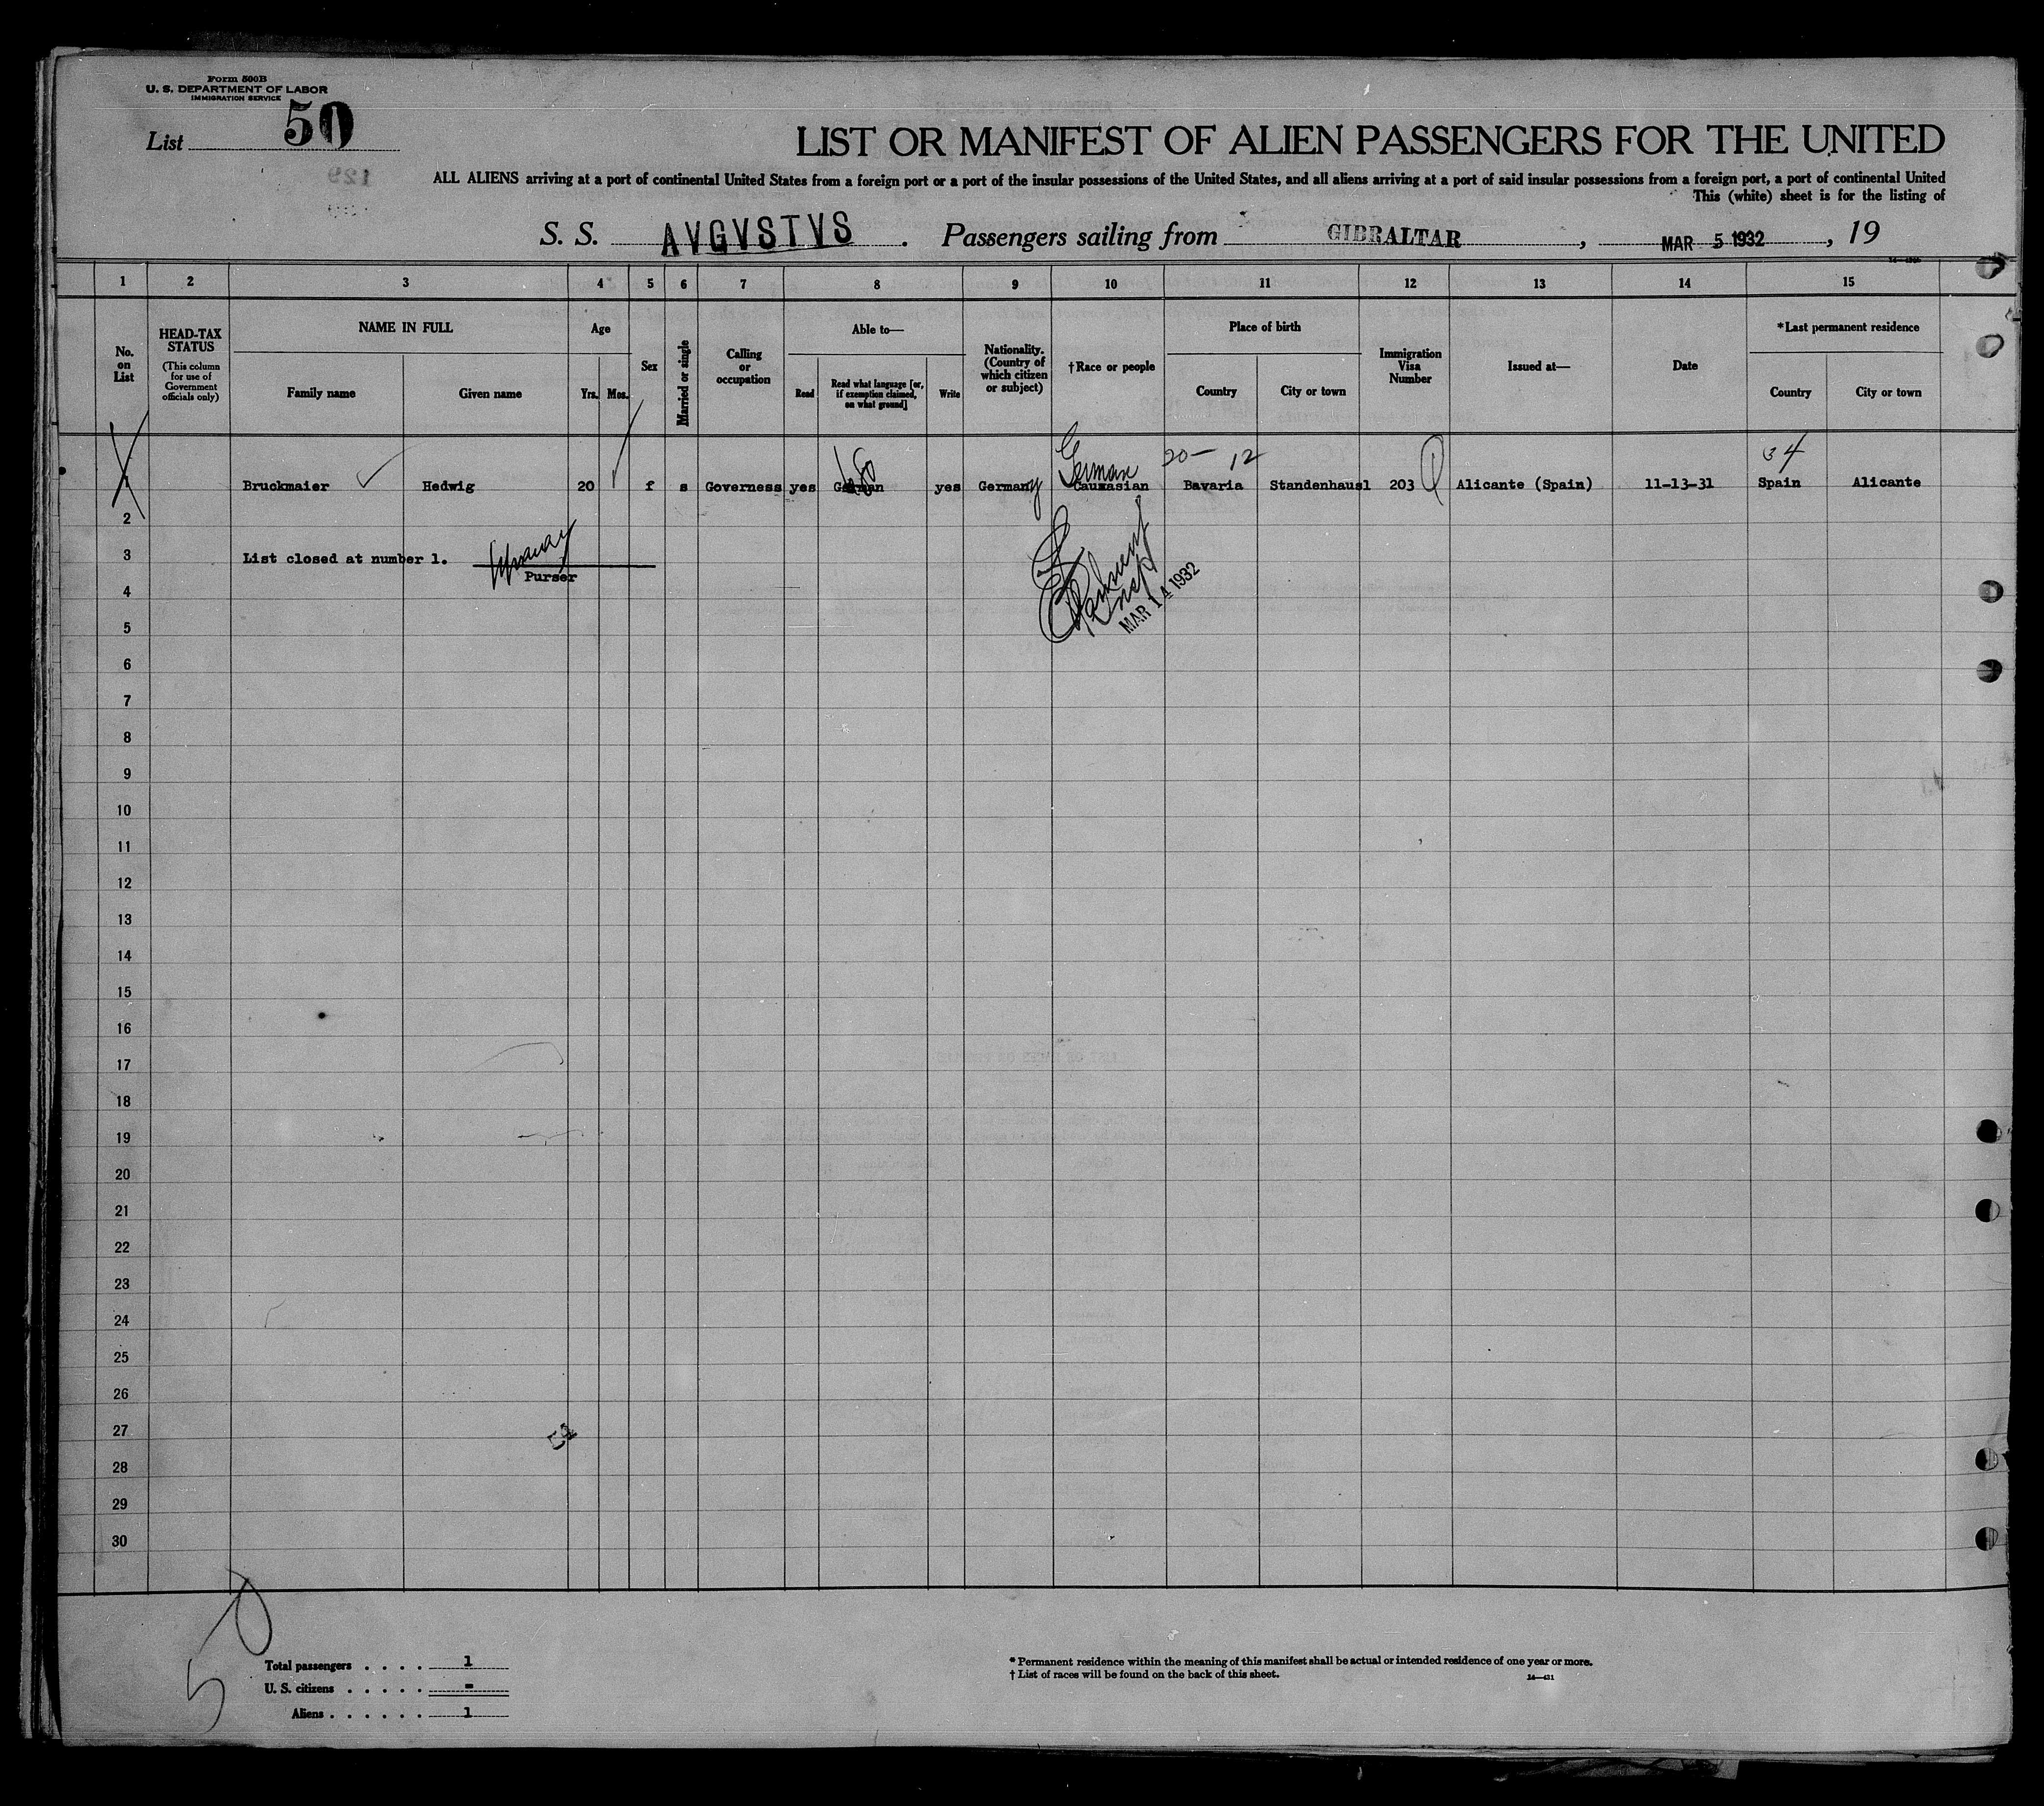 Form 500B
U. S. DEPARTMENT OF LABOR
IMMIGRATION SERVICE
List 50
LIST OR MANIFEST OF ALIEN PASSENGERS FOR THE UNITED
ALL ALIENS arriving at a port of continental United States from a foreign port or a port of the insular possessions of the United States, and all aliens arriving at a port of said insular possessions from a foreign port, a port of continental United
This (white) sheet is for the listing of
S. S. AVGVSTVS. Passengers sailing from GIBRALTAR, MAR 5 1932, 19
1 2 3 4 5 6 7 8 9 10 11 12 13 14 15
No. on List
HEAD-TAX STATUS
(This column for use of Government officials only)
NAME IN FULL
Family name
Given name
Age
Yrs. Mos.
Sex
Married or single
Calling or occupation
Able to—
Read
Read what language [or, if exemption claimed, on what ground]
Write
Nationality. (Country of which citizen or subject)
†Race or people
Place of birth
Country
City or town
Immigration Visa Number
Issued at—
Date
*Last permanent residence
Country
City or town
German 20— 12 34
1 Bruckmaier Hedwig 20 f s Governess yes German yes Germany Caucasian Bavaria Standenhausl 203 Alicante (Spain) 11-13-31 Spain Alicante
2
3 List closed at number 1.
Purser
4
MAR 14 1932
5
6
7
8
9
10
11
12
13
14
15
16
17
18
19
20
21
22
23
24
25
26
27
28
29
30
50
Total passengers . . . . 1
U. S. citizens . . . . . -
Aliens . . . . . . 1
* Permanent residence within the meaning of this manifest shall be actual or intended residence of one year or more.
† List of races will be found on the back of this sheet.
14—421